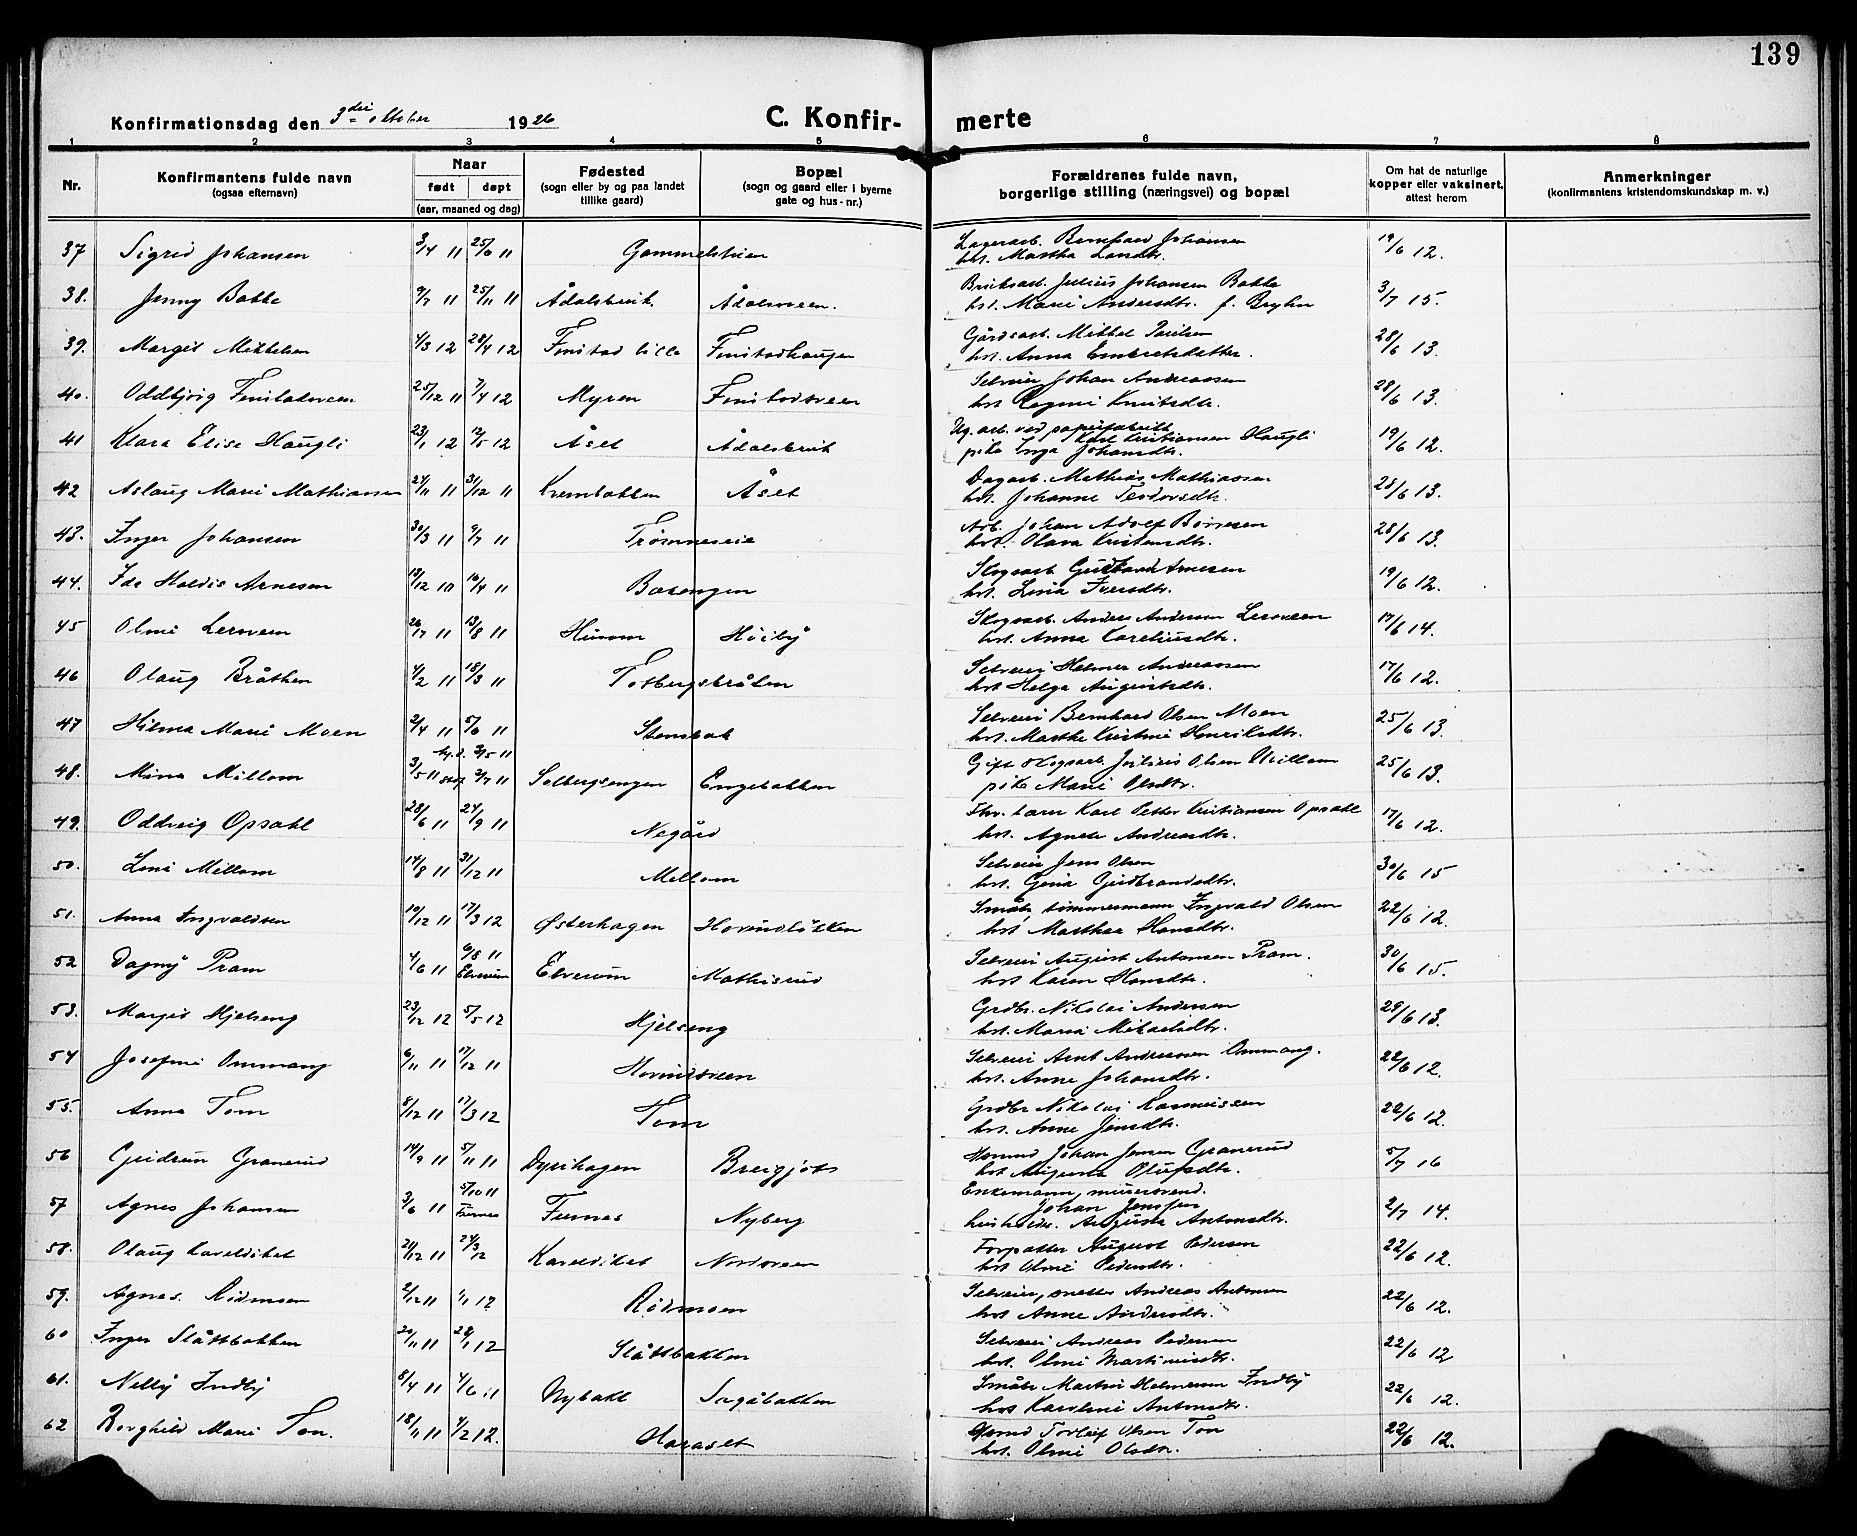 139
Konfirmationsdag den 3die oktober 1926
C. Konfirmerte
1 2 3 4 5 6 7 8
Nr.
Konfirmantens fulde navn
(ogsaa efternavn)
Naar
født døpt
(aar, maaned og dag)
Fødested
(sogn eller by og paa landet
tillike gaard)
Bopæl
(sogn og gaard eller i byerne
gate og hus-nr.)
Forældrenes fulde navn,
borgerlige stilling (næringsvei) og bopæl
Om hat de naturlige
kopper eller vaksinert,
attest herom
Anmerkninger
(konfirmantens kristendomskundskap m. v.)
37 Sigrid Johansen 3/4 11 25/6 11 Gammelstuen Lagerarb. Bernhard Johansen 19/6 12.
hst. Martha Larsdtr.
38. Jenny Bakke 9/7 11 25/11 11 Ådalsbruk Ådalsveen. Bruksarb. Julius Johansen Bakke 3/7 15.
hst. Marie Andersdtr. f. Bryhn
39. Margit Mikkelsen 4/3 12 28/4 12 Finstad lille Finstadhaugen Gårdsarb. Mikkel Paulsen 28/6 13.
hst. Anna Embretsdatter.
40. Oddbjörg Finstadsveen 25/12 11 7/4 12 Myren Finstadsveen Selveier Johan Andreassen 28/6 13.
hst. Ragna Knutsdtr.
41 Klara Elise Haugli 23/1 12 12/5 12 Åset Ådalsbruk Ug. arb. ved papirfabrikk 19/6 12.
Karl Kristiansen Haugli
pike Inga Johansdtr.
42 Aslaug Marie Mathiassen 24/11 11 31/12 11 Krembakken Åset Dagarb. Mathias Mathiassen 28/6 13.
hst. Johanne Teodorsdtr.
43. Inger Johansen 30/3 11 9/7 11 Trømneseie Arb. Johan Adolf Børresen 28/6 13.
hst. Olava Kristensdtr.
44. Ida Haldis Arnesen 18/12 10 16/4 11 Basengen Skogsarb. Gustav Arnesen 19/6 12.
hst. Lina Iversdtr.
45 Olma Lersveen 26/7 11 13/8 11 Husom Höiby Skogsarb. Anders Andersen Lersveen 17/6 14.
hst. Anna Kareliusdtr.
46 Olaug Bråthen 4/2 11 18/3 11 Torbergsbråten Selveier Helmer Andreassen 17/6 12.
hst Helga Augustsdtr.
47 Hilma Marie Moen 2/4 11 5/6 11 Stensbak Selveier Bernhard Olsen Moen 25/6 13.
hst. Marthe Kristine Henriksdtr.
48. Mina Millom 3/5 11 hj.d. 3/5 11 stadf. 2/7 11 Solbergsengen Engebakken Gift skogsarb. Julius Olsen Millom 25/6 13.
pike Marie Olsdtr.
49. Oddveig Opsahl 28/6 11 24/9 11 Negård Fhv. lærer Karl Petter Kristiansen Opsahl 17/6 12.
hst. Agnete Andersdtr.
50. Lina Millom 14/8 11 31/12 11 Mellom Selveier Jens Olsen 30/6 15
hst. Gina Gudbrandsdtr.
51. Anna Ingvaldsen 10/12 11 17/3 12 Østerhagen Hovindløkken Småbr. tömmermann Ingvald Olsen 22/6 12.
hst Marthea Hansdtr.
52 Dagny Pram 4/6 11 6/8 11 Elverum Elverum Mathisrud Selveier August Antonsen Pram. 30/6 15.
hst Karen Hansdtr.
53. Margit Hjelseng 23/12 12 5/5 12 Hjelseng Grdbr. Nikolai Andersen 29/6 13.
hst. Maria Mikaelsdtr.
54 Josefine Ommang 6/11 11 17/12 11 Hovindsveen Selveier Arnt Andreassen Ommang. 22/6 12.
hst. Anne Johansdtr.
55. Anna Tom 8/12 11 17/3 12 Tom Grdbr. Nikolai Rasmussen 22/6 12.
hst. Anne Jensdtr.
56 Gudrun Granerud 14/9 11 5/11 11 Dyrihagen Breigjota Husmd Johan Jensen Granerud 5/7 16
hst Augusta Olufsdtr.
57 Agnes Johansen 3/6 11 5/10 11 Furnes Furnes Nyberg Enkemann, murersvend. 2/7 14.
Johan Jenssen
husholdr. Augusta Antonsdtr.
58. Olaug Kavelsdiket 21/12 11 24/3 12 Kavelsdiket Nordsveen Forpakter August Pedersen 22/6 12.
hst Olma Pedersdtr.
59. Agnes Rödmoen 2/12 11 1/1 12 Rödmoen Selveier, snekker Andreas Antonsen 22/6 12.
hst Anne Andersdtr.
60 Inger Slåttbakken 20/11 11 28/1 12 Slåttbakken Selveier Andreas Pedersen 22/6 12
hst. Olma Martiniusdtr.
61. Nelly Indby 8/4 11 4/6 11 Nybakk Sagabakken Småbr Martin Helmersen Indby 22/6 12.
hst Karoline Antonsdtr.
62 Borghild Marie Ton. 18/11 11 4/2 12. Haraset Husmd Torleif Olsen Ton 22/6 12.
hst. Olma Olsdtr.